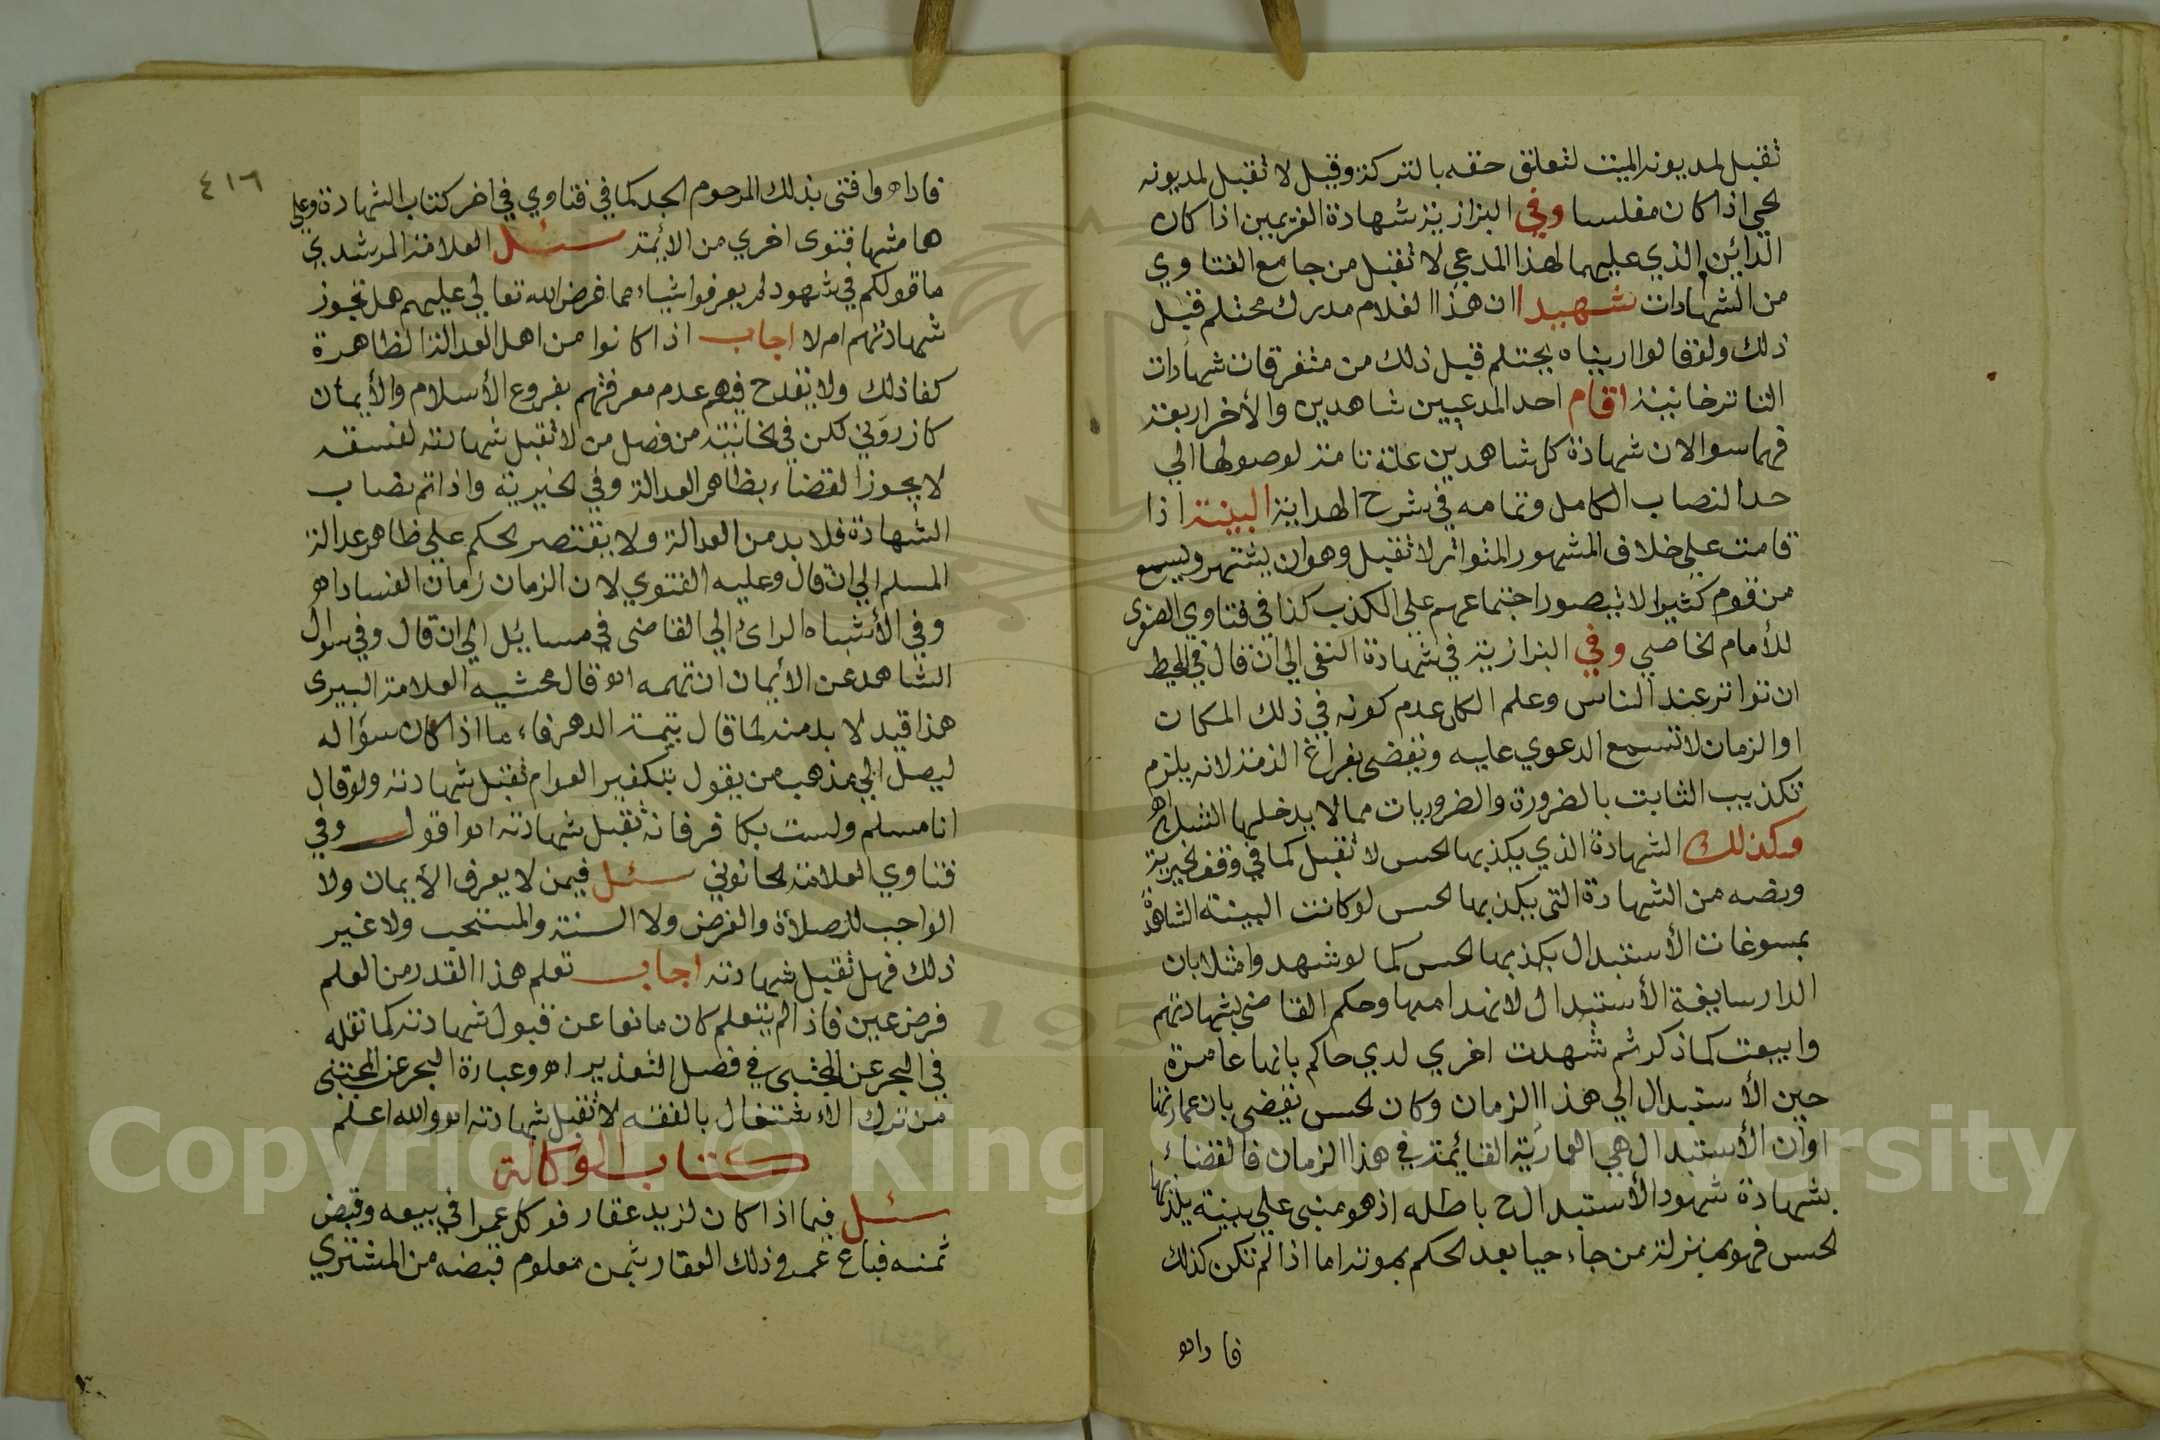 تقبل لمديونه الميت لتعلق حقه بالتركة وقيل لا تقبل لمديونه
لحي اذا كان مفلسا وفي البزازية شهادة الغريمين اذا كان
الدائن الذي عليهما لهذا المدعي لا تقبل من جامع الفتاوي
من الشهادات شهيدا ان هذا الغلام مدرك محتلم قبل
ذلك ولو قالوا ريناه يحتلم قبل ذلك من متفرقات شهادات
التاترخانية اقام احد المدعيين شاهدين والاخر اربعة
فهما سوا لان شهادة كل شاهدين علة تامة لوصولها الي
حد النصاب الكامل وتمامه في شرح الهداية البينة اذا
قامت علي خلاف المشهور المتواتر لا تقبل وهو ان يشتهر ويسمع
من قوم كثير لا يتصور اجتماعهم علي الكذب كذا في فتاوي الصغرى
للأمام الخاصي وفي البزازية في شهادة النفي الي ان قال في المحيط
ان تواتر عند الناس وعلم الكل عدم كونه في ذلك المكان
او الزمان لا تسمع الدعوي عليه ويقضى بفراغ الذمة لانه يلزم
تكذيب الثابت بالضرورة والضروريات مما لا يدخلها الشك اه
وكذلك الشهادة الذي يكذبها الحس لا تقبل كما في وقف الخيرية
ونصه من الشهادة التي يكذبها الحس لو كانت البينة الشاهدة
بمسوغات الأستبدال يكذبها الحس كما لو شهدوا مثلا بان
الدار سايغة الأستبدال لانهدامها وحكم القاضي بشهادتهم
وابيعت كما ذكر ثم شهدت اخري لدي حاكم بانها عامرة
حين الأستبدال الي هذا الزمان وكان الحس يقضي بان عمارتها
اوان الأستبدال هي العمارية القائمة في هذا الزمان فالقضاء
بشهادة شهود الأستبدال ح باطله اذ هو مبني علي بينة يكذبها
لحس فهو بمنزلة من جاء حيا بعد الحكم بموته اما اذا لم تكن كذلك
فا داه
٤١٦
فا داه وافتى بذلك المرحوم الجد كما في فتاوي في اخر كتاب الشهادة وعلي
هامشها فتوى اخري من الائمة سئل العلامة المرشدي
ما قولكم في شهود لم يعرفوا شياء مما فرض الله تعالي عليهم هل تجوز
شهادتهم ام لا اجاب اذا كانوا من اهل العدالة الظاهرة
كفا ذلك ولا يقدح فيهم عدم معرفتهم بفروع الأسلام والأيمان
كازروني لكن في الخانية من فصل من لا تقبل شهادته لفسقه
لا يجوز القضاء بظاهر العدالة وفي الخيرية واذا تم نصاب
الشهادة فلا بد من العدالة ولا يقتصر الحكم علي ظاهر عدالة
المسلم الي ان قال وعليه الفتوي لان الزمان زمان الفساد اه
وفي الأشباه الرائ الي القاضي في مسائل الي ان قال وفي سوال
الشاهد عن الأيمان ان تهمه اه وقال محشيه العلامة البيري
هذا قيد لا بد منه لما قال يتيمة الدهر فاء ما اذا كان سؤاله
ليصل الي مذهب من يقول بتكفير العوام تقبل شهادته ولو قال
انا مسلم ولست بكافر فانه تقبل شهادته اه اقول وفي
فتاوي العلامة الحانوتي سئل فيمن لا يعرف الأيمان ولا
الواجب للصلاة والفرض ولا السنة والمستحب ولا غير
ذلك فهل تقبل شهادته اجاب تعلم هذا القدر من العلم
فرض عين فاذا لم يتعلم كان مانعا عن قبول شهادته كما نقله
في البحر عن المجتبى في فصل التعذير اه وعبارة البحر عن المجتبى
من ترك الاء شتغال بالفقه لا تقبل شهادته اه والله اعلم
كتاب الوكالة
سئل فيما اذا كان لزيد عقار فوكل عمرا في بيعه وقبض
ثمنه فباع عمرو ذلك العقار بثمن معلوم قبضه من المشتري
Copyright © King Saud University